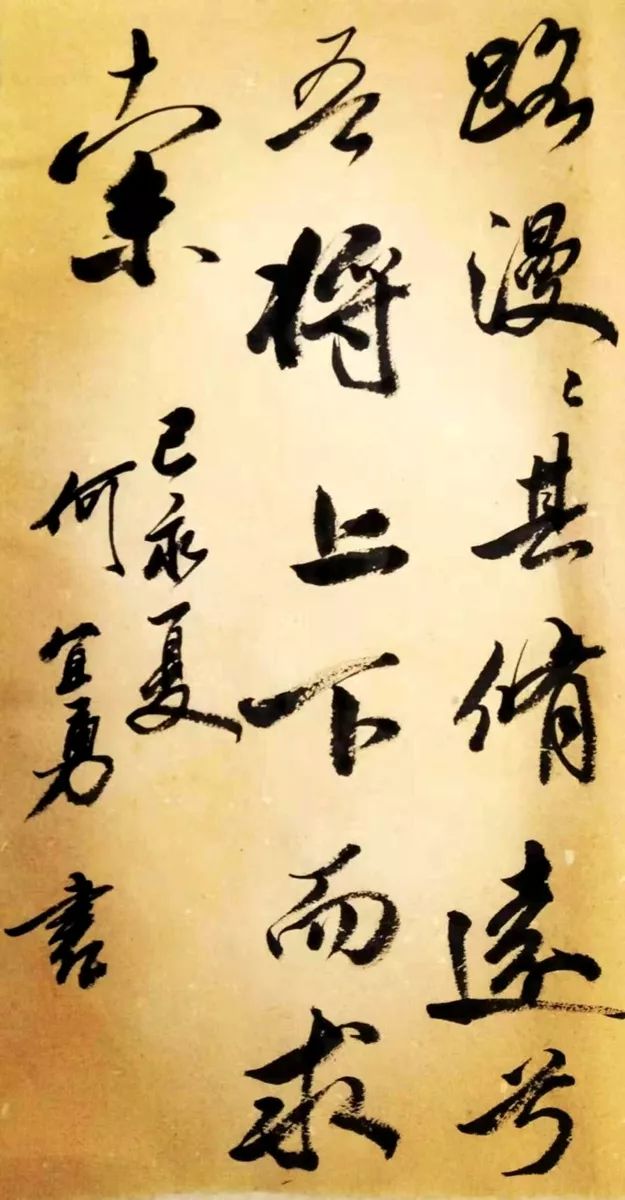 路漫〻其脩遠兮
吾將上下而求
索
己亥夏
何宜勇書